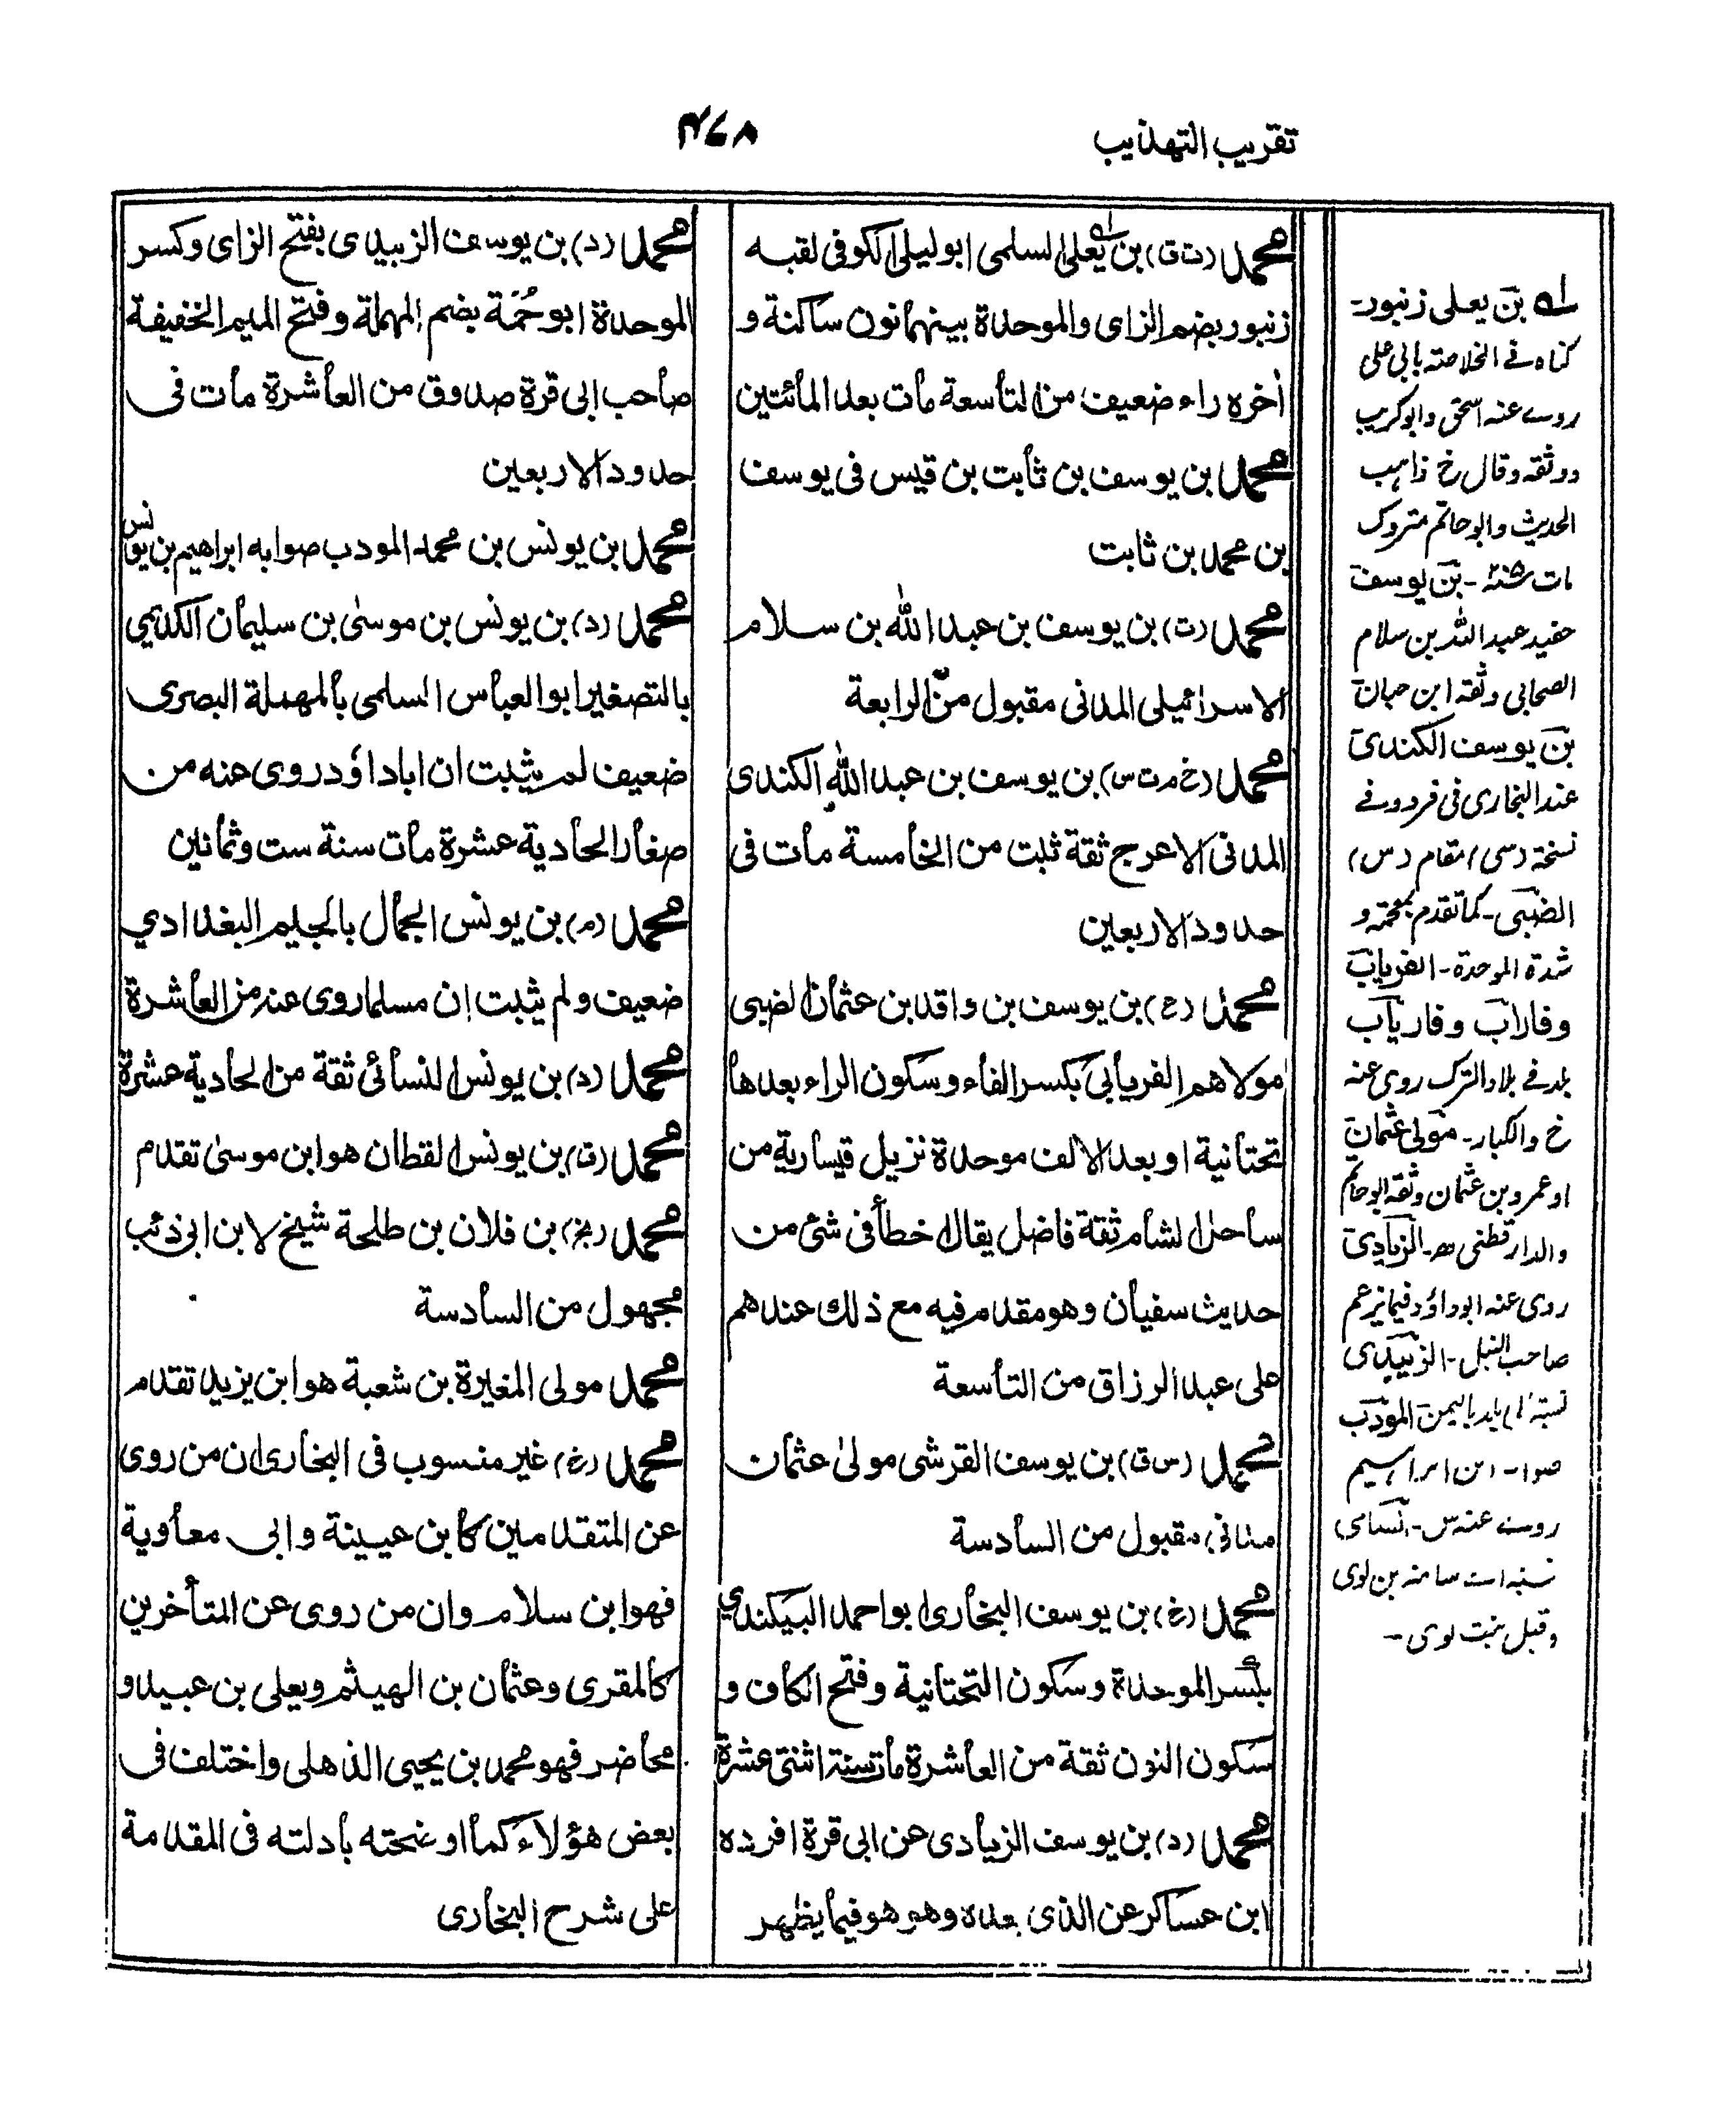 تقريب التهذيب
٤٧٨
محمد (ت ق) بن يعلى السلمى ابو ليلى الكوفى لقبه
زنبور بضم الزاى والموحدة بينهما نون ساكنة و
أخره راء ضعيف من التاسعة مات بعد المائتين
محمد بن يوسف بن ثابت بن قيس فى يوسف
بن محمد بن ثابت
محمد (ت) بن يوسف بن عبد الله بن سلام
الاسرائيلى المدنى مقبول من الرابعة
محمد (خ م ت س) بن يوسف بن عبد الله الكندى
المدنى الاعرج ثقة ثبت من الخامسة مات فى
حدود الاربعين
محمد (ع) بن يوسف بن واقد بن عثمان الضبى
مولاهم الفريابى بكسر الفاء وسكون الراء بعدها
تحتانية او بعد الالف موحدة نزيل قيسارية من
ساحل الشام ثقة فاضل يقال اخطأ فى شئ من
حديث سفيان وهو مقدم فيه مع ذلك عندهم
على عبد الرزاق من التاسعة
محمد (س ق) بن يوسف القرشى مولى عثمان
مدنى مقبول من السادسة
محمد (خ) بن يوسف البخارى ابو احمد البيكندي
بكسر الموحدة وسكون التحتانية وفتح الكاف و
سكون النون ثقة من العاشرة مات سنة اثنتى عشرة
محمد (د) بن يوسف الزيادى عن ابى قرة افرده
ابن عساكر عن الذى بعده وهو هو فيما يظهر
محمد (د) بن يوسف الزبيدى بفتح الزاى وكسر
الموحدة ابو حُمَة بضم المهملة وفتح الميم الخفيفة
صاحب ابى قرة صدوق من العاشرة مات فى
حدود الاربعين
محمد بن يونس بن محمد المودب صوابه ابراهيم بن يونس
محمد (د) بن يونس بن موسى بن سليمان الكديمي
بالتصغير ابو العباس السلمى بالمهملة البصرى
ضعيف لم يثبت ان ابا داؤد روى عنه من
صغار الحادية عشرة مات سنة ست وثمانين
محمد (م) بن يونس الجمال بالجيم البغدادي
ضعيف ولم يثبت ان مسلما روى عنه من العاشرة
محمد (د) بن يونس النسائى ثقة من الحادية عشرة
محمد (ق) بن يونس القطان هو ابن موسى تقدم
محمد (بخ) بن فلان بن طلحة شيخ لابن ابى ذئب
مجهول من السادسة
محمد مولى المغيرة بن شعبة هو ابن يزيد تقدم
محمد (خ) غير منسوب فى البخارى ان من روى
عن المتقدمين كابن عيينة وابى معاوية
فهو ابن سلام وان من روى عن المتأخرين
كالمقرى وعثمان بن الهيثم ويعلى بن عبيد و
محاضر فهو محمد بن يحيى الذهلى واختلف فى
بعض هؤلاء كما اوضحته بادلته فى المقدمة
على شرح البخارى
له بن يعلى زنبور-
كناه فے الخلاصة بابى على
روے عنه اسحق وابو كريب
ووثقه وقال خ ذاهب
الحديث وابو حاتم متروك
مات - بن يوسف
حفيد عبد الله بن سلام
الصحابى وثقه ابن حبان
بن يوسف الكندى
عند البخارى فى فرد وفے
نسخة (سى) مقام (س)
الضبى - كما تقدم بمعجمة و
شدة الموحدة - الفرياب
وفاراب وفارياب
بلد فے بلاد الترك روى عنه
خ والكبار - مولى عثمان
او عمرو بن عثمان وثقه ابو حاتم
والدارقطنى - الزيادى
روى عنه ابو داؤد فيما زعم
صاحب النبل - الزبيدى
نسبة باليمن المودب
ابن ابراهيم
روے عنه س - النسائى
سامة بن لوى
وقيل بنت لوى -